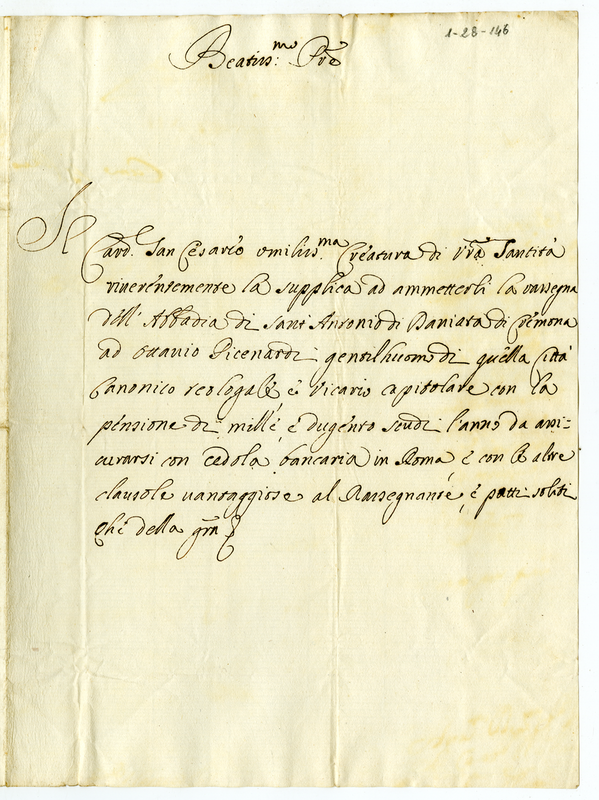 1-28-146
Beatiss:mo Pre
Il
Card.l San Cesareo umiliss:ma Creatura di Vrã Santità
riverentemente la supplica ad ammettergli la rassegna
dell' Abbadia di Sant'Antonio di Daniara di Cremona
ad Ottavio Picenardi gentilhuom di quella Città
Canonico teologale, e Vicario capitolare con la
pensione di mille, e dugento scudi l'anno da assi-
curarsi con Cedola bancaria in Roma, e con le altre
clausole vantaggiose al Rassegnante, e patti soliti
Che della grã